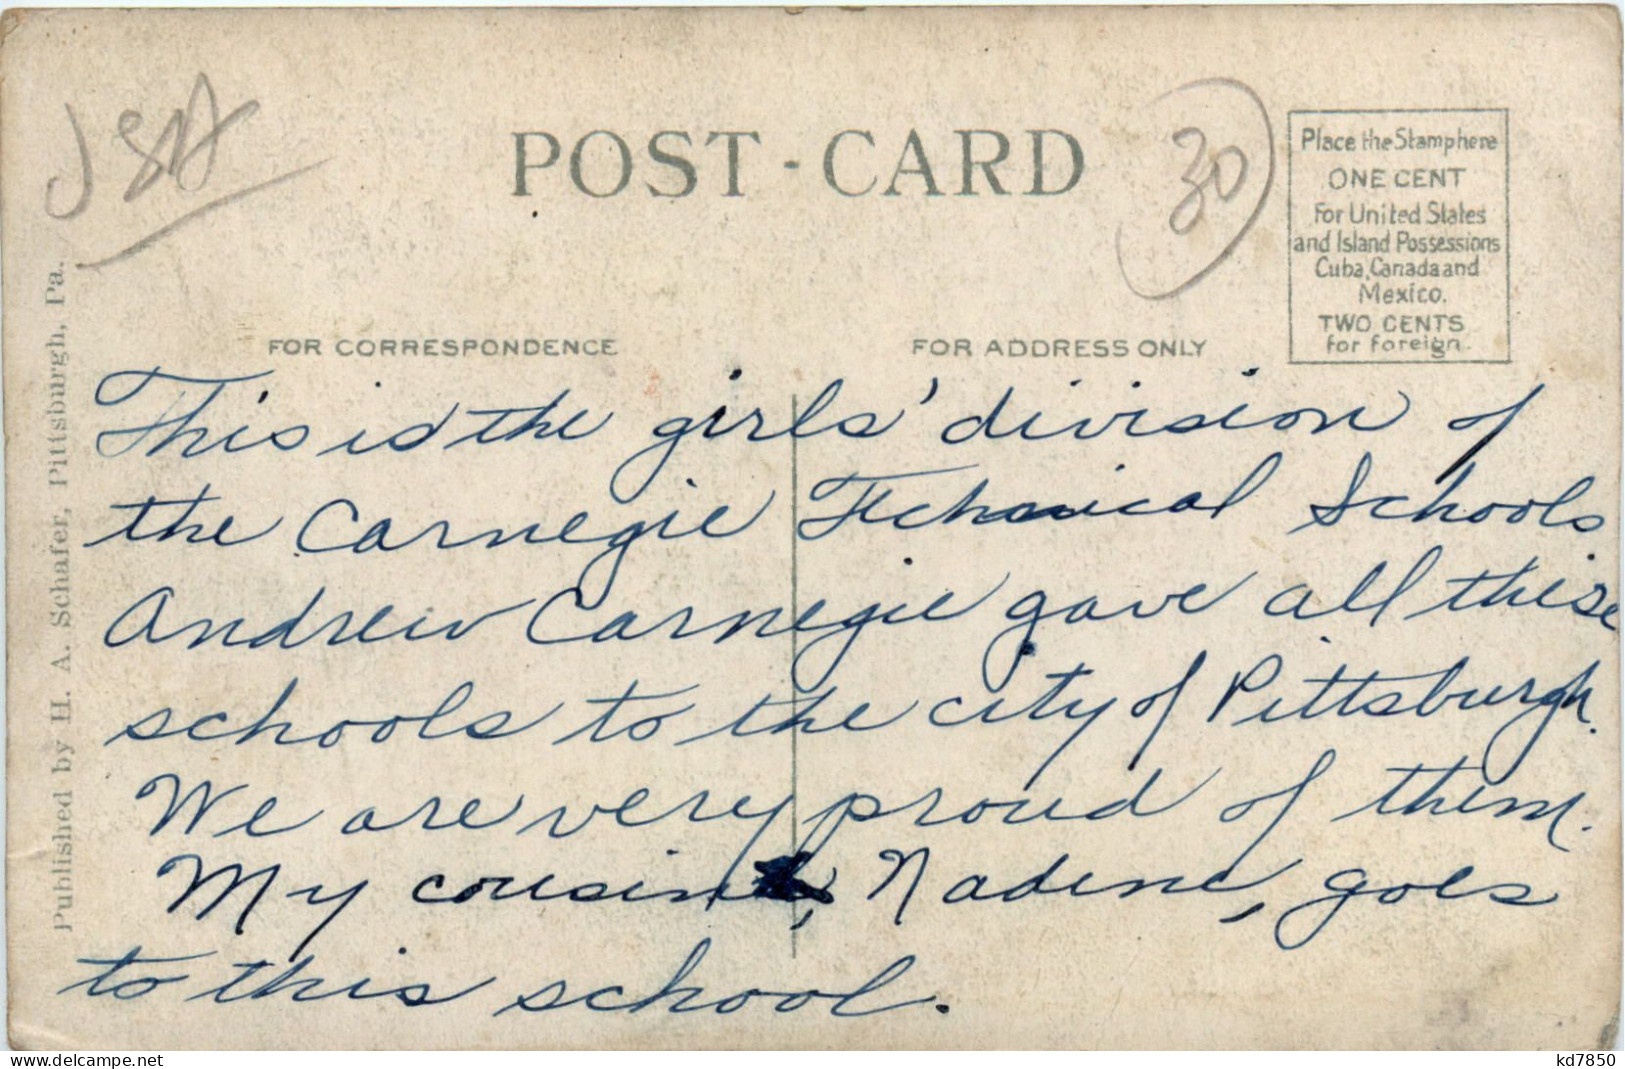 POST-CARD
30
Place the Stamp here
ONE CENT
For United States
and Island Possessions
Cuba, Canada and
Mexico.
TWO CENTS
for foreign.
FOR CORRESPONDENCE
FOR ADDRESS ONLY
Published by H. A. Schafer, Pittsburgh, Pa.
This is the girls' division of
the Carnegie Technical Schools
Andrew Carnegie gave all these
schools to the city of Pittsburgh.
We are very proud of them.
My cousin, Nadene, goes
to this school.
www.delcampe.net
kd7850